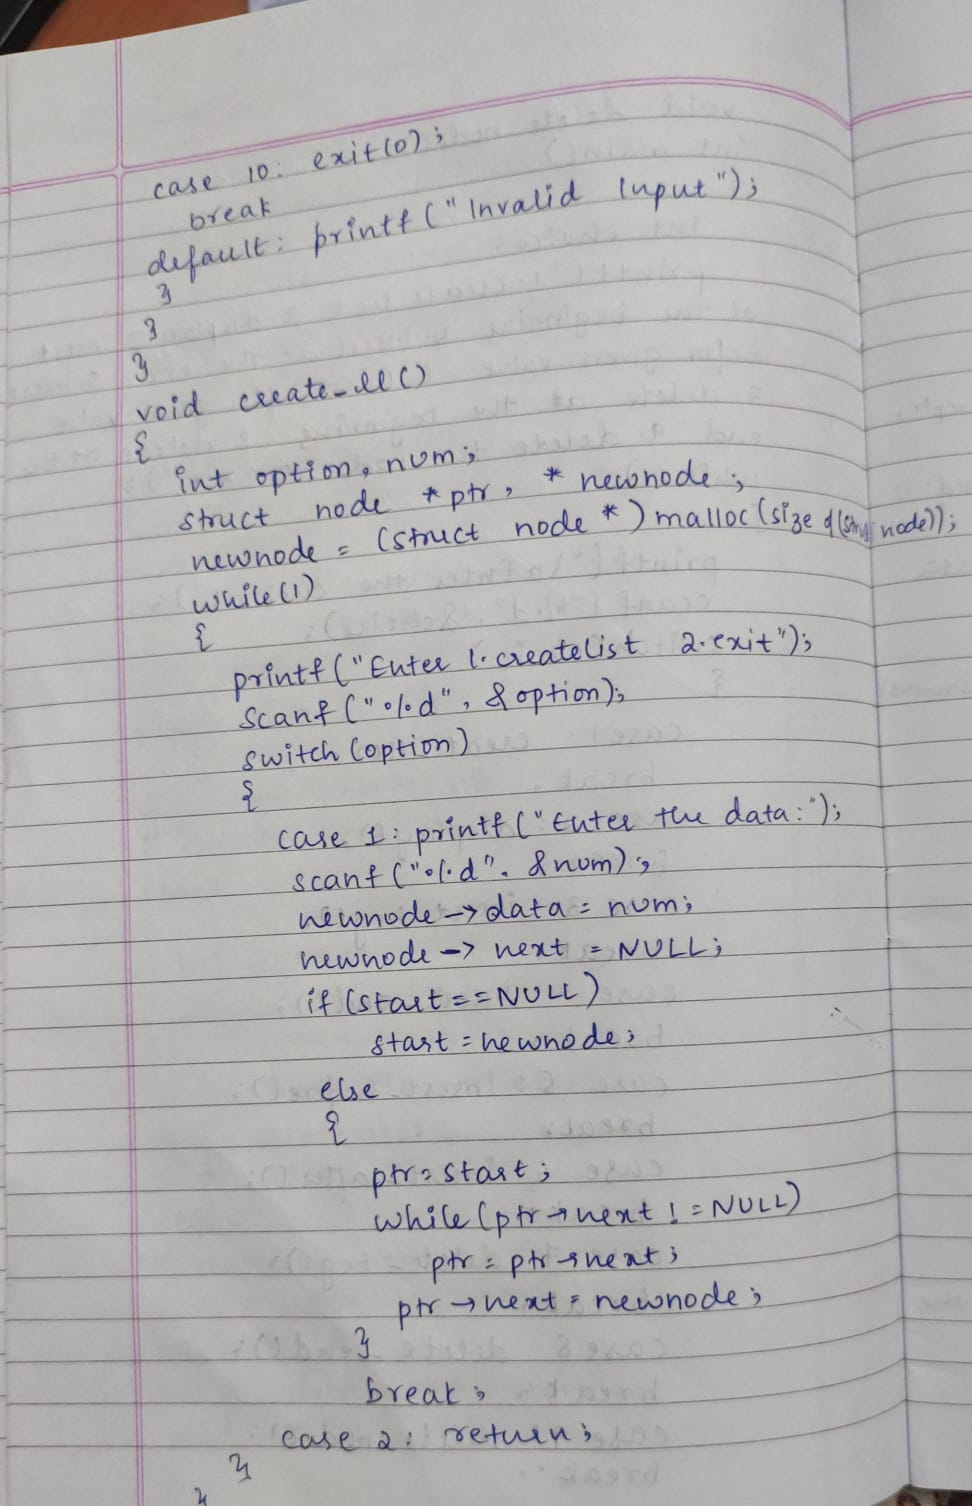 case 10: exit(0);
break
default: printf("Invalid Input");
}
}
}
void create_ll()
{
int option, num;
struct node *ptr, *newnode;
newnode = (struct node *) malloc(size of(struct node));
while(1)
{
printf("Enter 1.createlist 2.exit");
scanf("%d", &option);
switch(option)
{
case 1: printf("Enter the data:");
scanf("%d", &num);
newnode->data = num;
newnode->next = NULL;
if(start==NULL)
start = newnode;
else
{
ptr=start;
while(ptr->next != NULL)
ptr = ptr->next;
ptr->next = newnode;
}
break;
case 2: return;
}
}